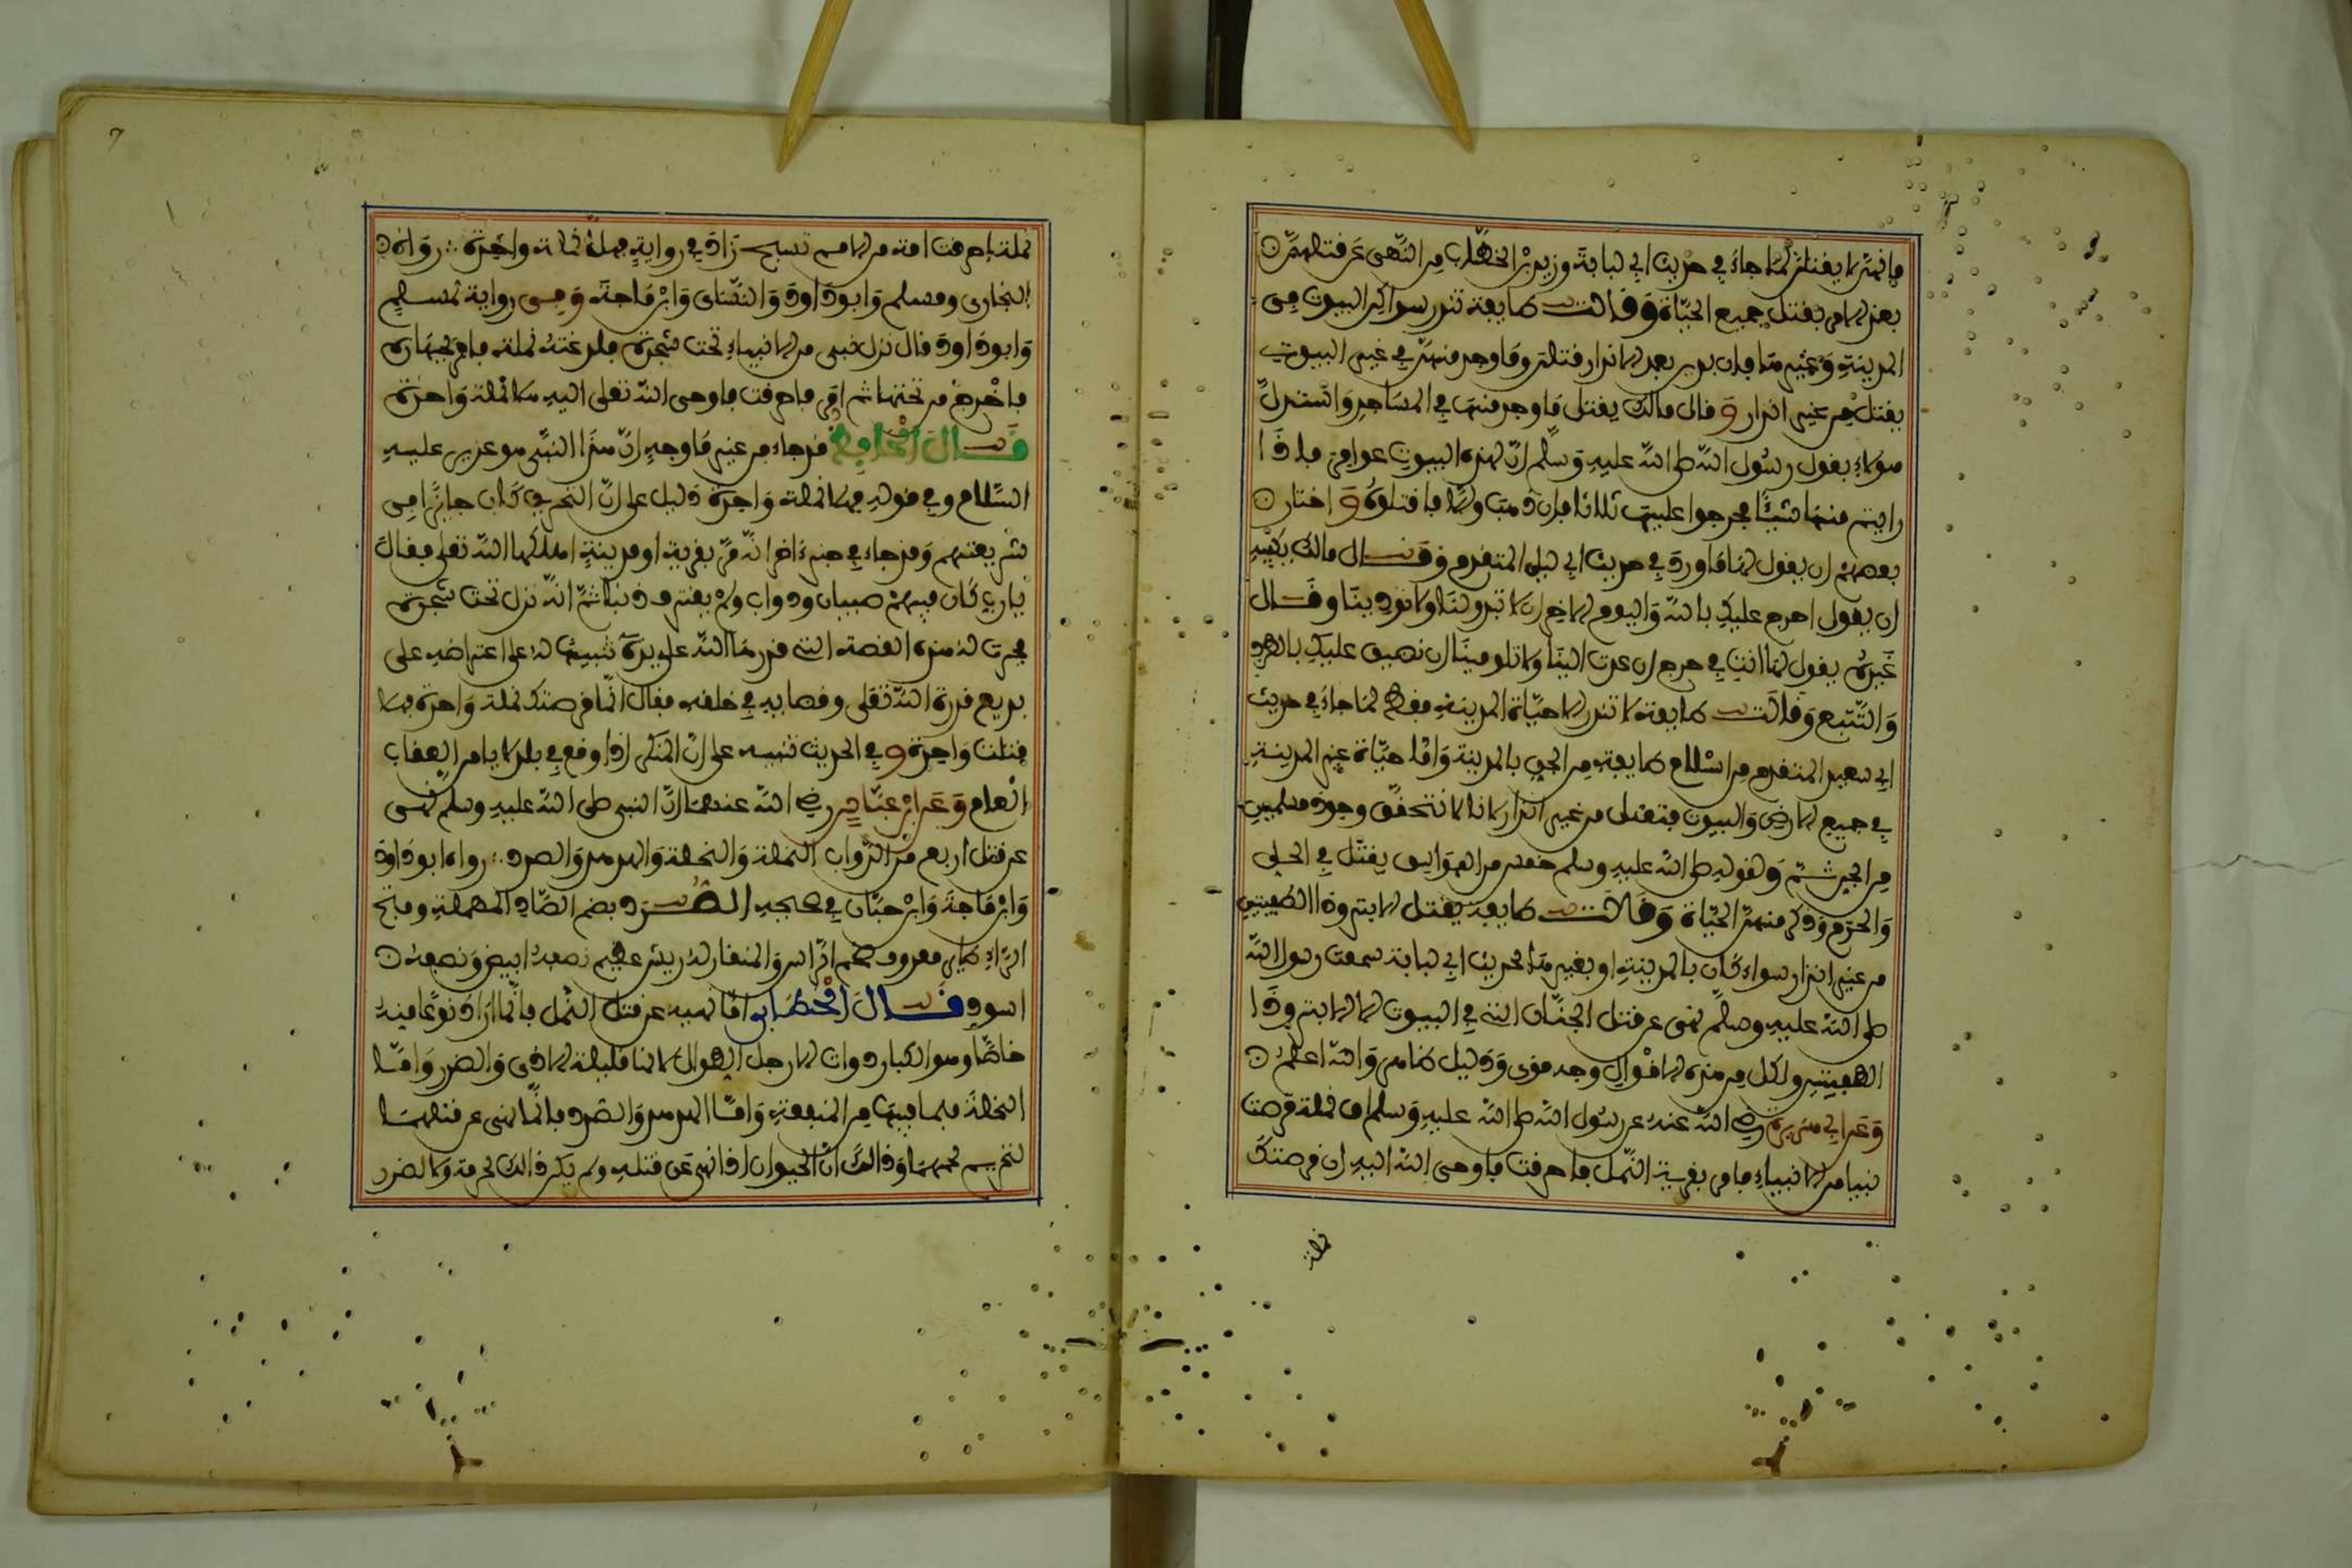 فإنهن لا يقتلن لما جاء في حديث أبي لبابة وزيد بن الخطاب من النهي عن قتلهن
بعد الأمر بقتل جميع الحيات وقالت طايفة تنذر سواكن البيوت في
المدينة وغيرها فإن بدين بعد الإنذار قتلن وما وجد منهن في غير البيوت
يقتل من غير إنذار وقال مالك يقتل ما وجد منها في المساجد واستدل
هولاء بقول رسول الله صلى الله عليه وسلم إن لهذه البيوت عوامر فإذا
رايتم منها شيئا فحرجوا عليها ثلاثا فإن ذهب وإلا فاقتلوه واختار
بعضهم أن يقول لها ما ورد في حديث أبي ليلى المتقدم وقال مالك يكفيه
أن يقول أحرج عليك بالله واليوم الآخر أن لا تبدو لنا ولا توذينا وقال
غيره يقول لها أنت في حرج إن عدت إلينا ولا تلومينا أن نضيق عليك بالطرد
والتتبع وقالت طايفة لا تنذر إلا حيات المدينة فقط لما جاء في حديث
أبي سعيد المتقدم من إسلام طايفة من الجن بالمدينة وأما حيات غير المدينة
في جميع الأرض والبيوت فتقتل من غير إنذار لأنا لا نتحقق وجود مسلمين
من الجن ثم ولقوله صلى الله عليه وسلم خمس من الفواسق يقتلن في الحل
والحرم وذكر منهن الحيات وقالت طايفة يقتل الأبتر وذا الطفيتين
من غير إنذار سواء كان بالمدينة أو بغيرها لحديث أبي لبابة سمعت رسول الله
صلى الله عليه وسلم نهى عن قتل الجنان التي في البيوت إلا الأبتر وذا
الطفيتين ولكل من هذه الأقوال وجه قوي ودليل ظاهر والله أعلم
وعن أبي هريرة رضي الله عنه عن رسول الله صلى الله عليه وسلم أن نملة قرصت
نبيا من الأنبياء فأمر بقرية النمل فأحرقت فأوحى الله إليه أن قرصتك
نملة
7
نملة أحرقت أمة من الأمم تسبح زاد في رواية فهلا نملة واحدة رواه
البخاري ومسلم وأبو داود والنسائي وابن ماجة وفي رواية لمسلم
وأبو داود قال نزل نبي من الأنبياء تحت شجرة فلدغته نملة فأمر بجهازه
فأخرج من تحتها ثم أمر فأحرقت فأوحى الله تعلى إليه هلا نملة واحدة
قال الحافظ قد جاء من غير ما وجه أن هذا النبي هو عزير عليه
السلام وفي قوله فهلا نملة واحدة دليل على أن التحريق كان جايزا في
شريعتهم وقد جاء في خبر آخر أنه مر بقرية أو مدينة أهلكها الله تعلى فقال
يا رب كان فيهم صبيان ودواب ولم يقترف ذنبا ثم أنه نزل تحت شجرة
فجرت له هذه القصة التي قدرها الله على يده تنبيها له على اعتراضه على
بديع قدرة الله تعلى وقضايه في خلقه فقال إنما قرصتك نملة واحدة فهلا
قتلت واحدة وفي الحديث تنبيه على أن المنكر إذا وقع في بلد لا يامن العقاب
العام وعن ابن عباس رضي الله عنهما أن النبي صلى الله عليه وسلم نهى
عن قتل أربع من الدواب النملة والنحلة والهدهد والصرد رواه أبو داود
وابن ماجة وابن حبان في صحيحه الصرد بضم الصاد المهملة وفتح
الراء طاير معروف ضخم الراس والمنقار له ريش عظيم نصفه أبيض ونصفه
أسود قال الخطابي أما نهيه عن قتل النمل فإنما أراد نوعا منه
خاصا وهو الكبار ذوات الأرجل الطوال لأنها قليلة الأذى والضرر وأما
النحلة فلما فيها من المنفعة وأما الهدهد والصرد فإنما نهى عن قتلهما
لتحريم لحمهما وذالك أن الحيوان إذا نهي عن قتله ولم يكن ذالك لحرمة ولا لضرر